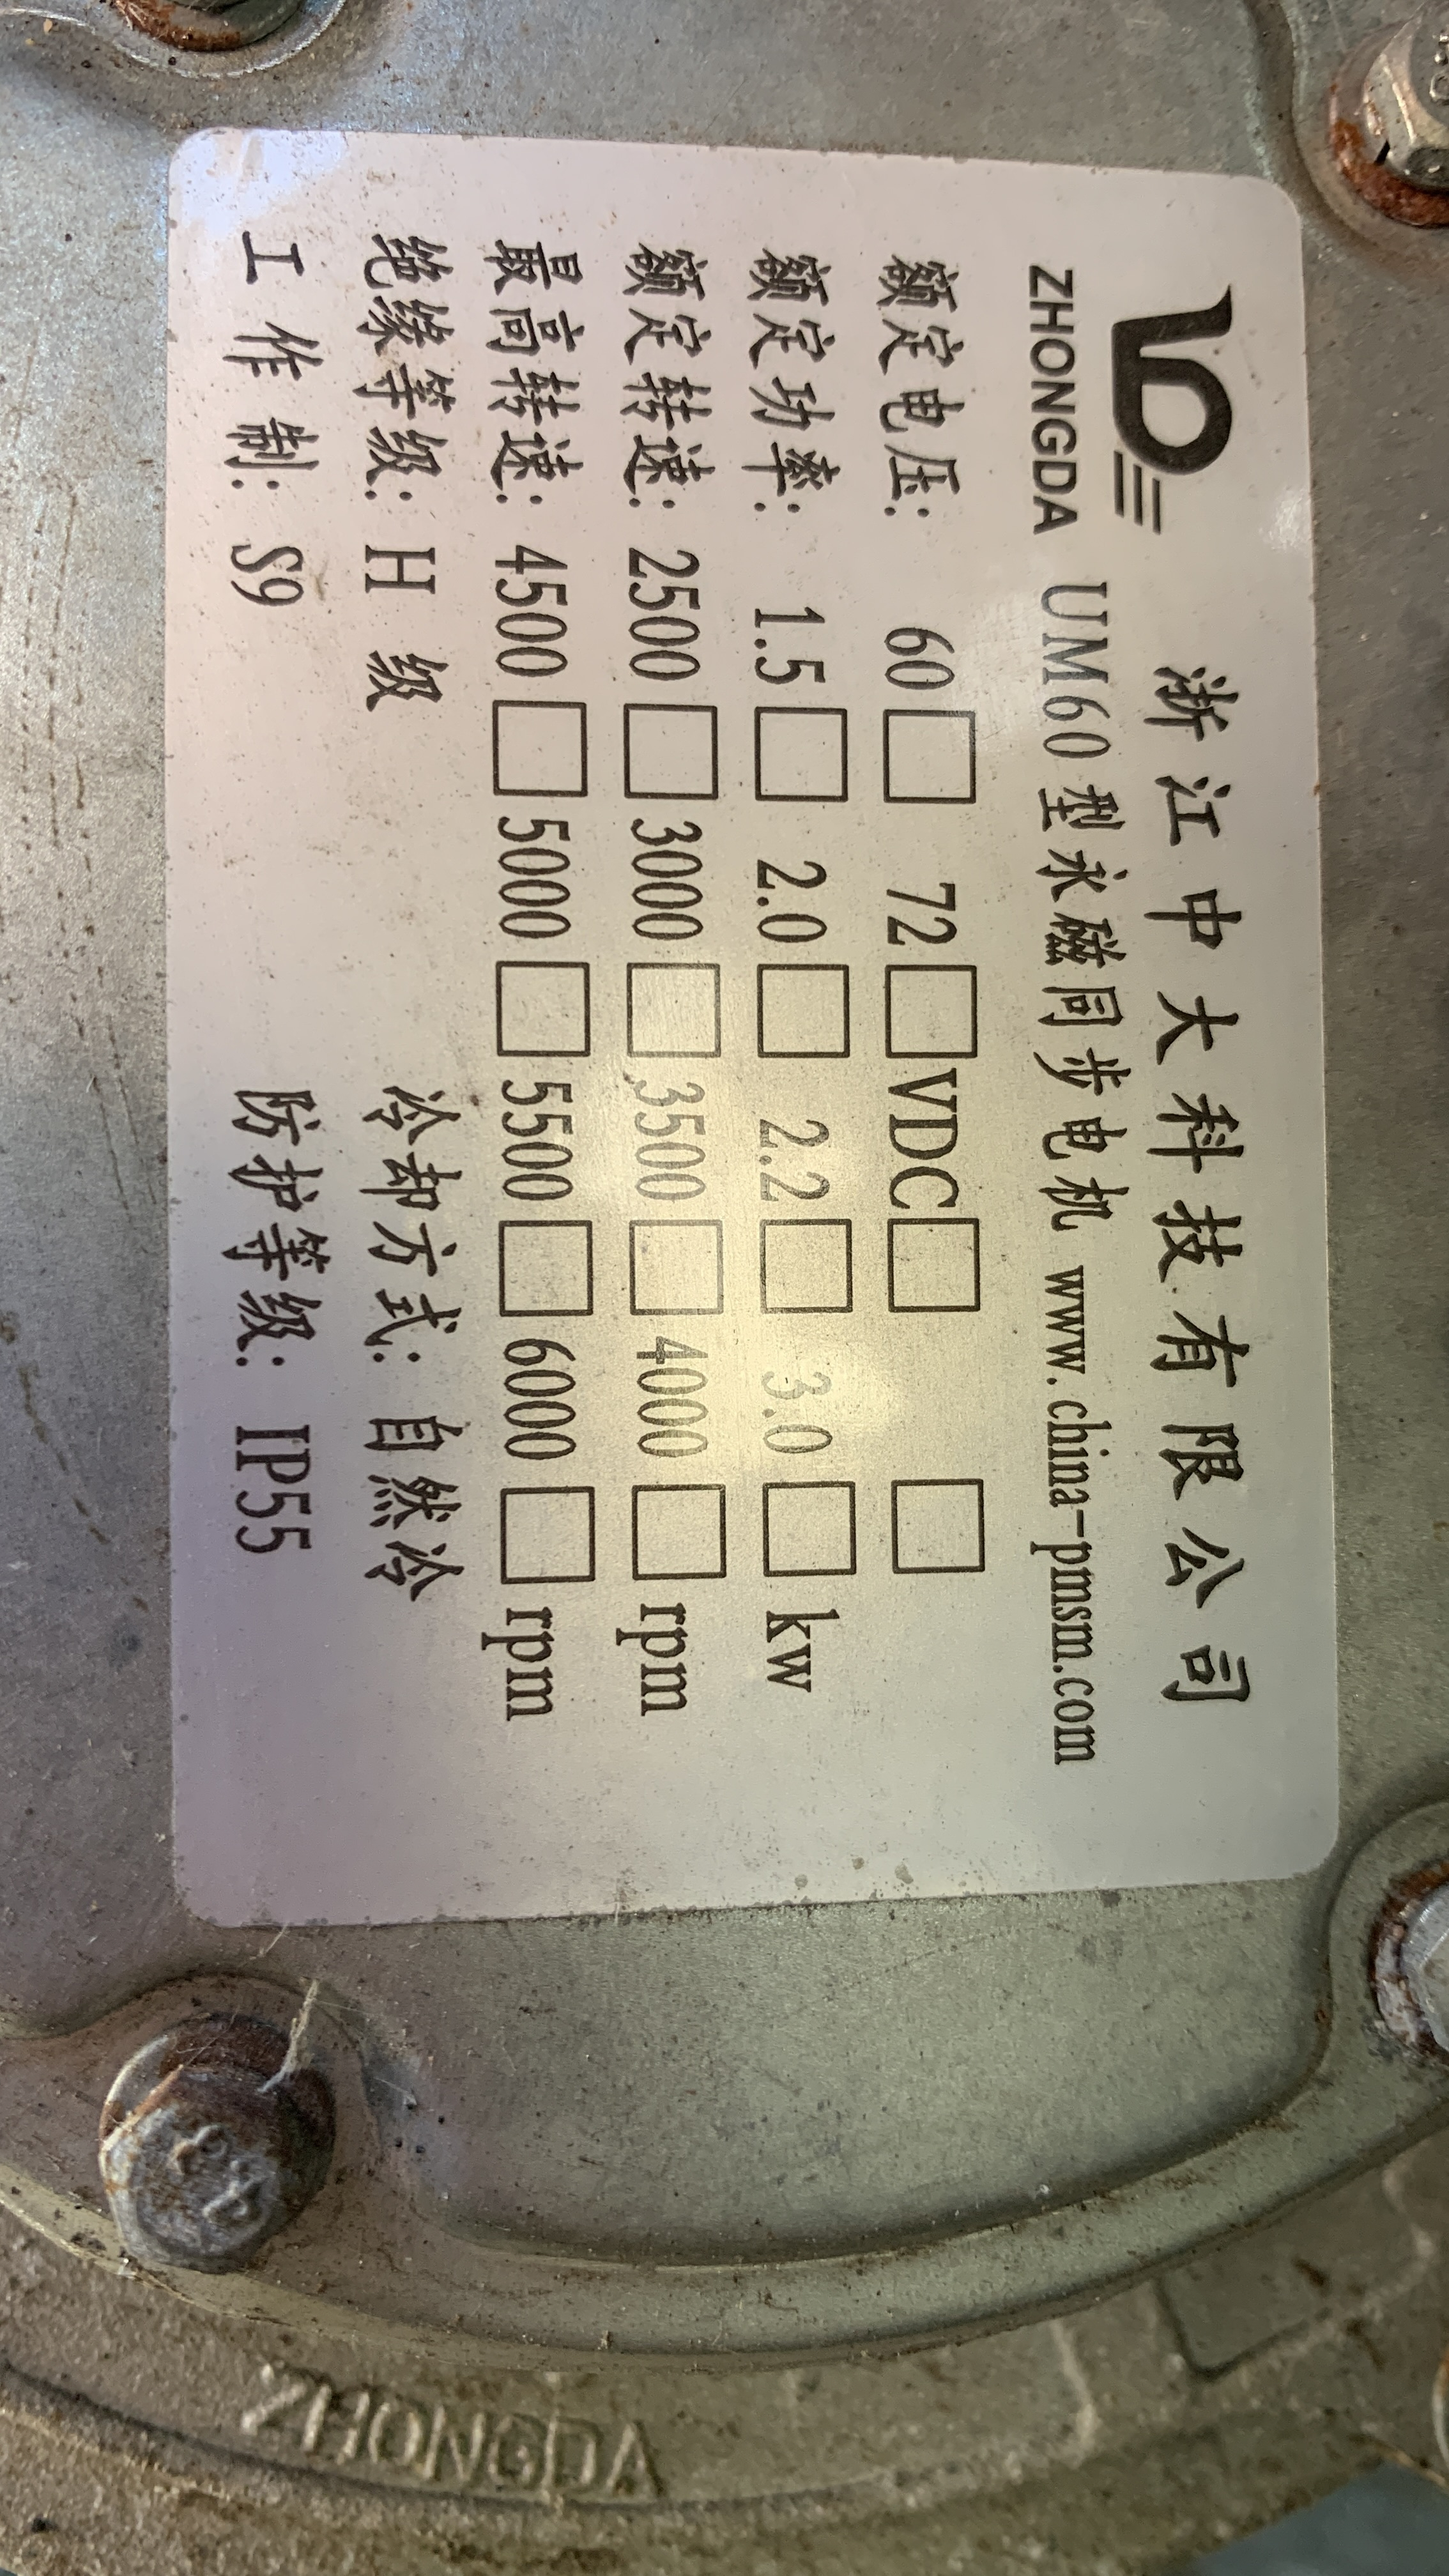 浙江中大科技有限公司
ZHONGDA UM60型永磁同步电机 www.china-pmsm.com
额定电压: 60□ 72□VDC□ □
额定功率: 1.5□ 2.0□ 2.2□ 3.0□kw
额定转速: 2500□3000□3500□4000□rpm
最高转速: 4500□5000□5500□6000□rpm
绝缘等级: H 级 冷却方式: 自然冷
工作制: S9 防护等级: IP55
ZHONGDA